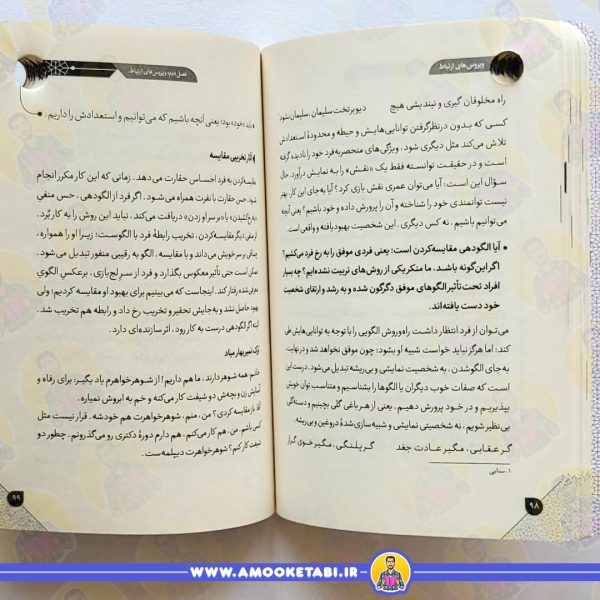 ویروس‌های ارتباط
راه مخلوقان گیری و نیندیشی هیچ دیو برتخت سلیمان، سلیمان نشود
کسی که بدون درنظرگرفتن توانایی‌هایش و حیطه و محدودهٔ استعدادش
تلاش می‌کند مثل دیگری شود، ویژگی‌های منحصربه‌فرد خود را نادیده گرفته
است و در حقیقت توانسته فقط یک «نقش» را به نمایش درآورد. حال
سؤال این است: آیا می‌توان عمری نقش بازی کرد؟ آیا به‌جای این کار، بهتر
نیست توانمندی خود را شناخته و آن را پرورش داده و خود باشیم؟ یعنی آنچه
می‌توانیم باشیم، نه کس دیگری. این شخصیت بهبودیافته و واقعی است.
آیا الگودهی مقایسه‌کردن است؛ یعنی فردی موفق را به رخ فرد می‌کشیم؟
اگر این‌گونه باشد، ما منکر یکی از روش‌های تربیت نشده‌ایم؟ چه بسیار
افراد تحت‌تأثیر الگوهای موفق دگرگون شده و به رشد و ارتقای شخصیت
خود دست یافته‌اند.
می‌توان از فرد انتظار داشت راه‌وروش الگویی را با توجه به توانایی‌هایش طی
کند؛ اما هرگز نباید خواست شبیه او بشود؛ چون موفق نخواهد شد و در نهایت،
به‌جای الگوشدن، به شخصیتی نمایشی و بی‌ریشه تبدیل می‌شود. درست این
است که صفات خوب دیگران یا الگوها را بشناسیم و متناسب توان خویش
بپذیریم و در خود پرورش دهیم. یعنی از هر باغی گلی بچینیم و دسته‌گلی
بی‌نظیر شویم، نه شخصیتی نمایشی و شبیه‌سازی شدهٔ دروغین و بی‌ریشه.
گر عقابی، مگیر عادت جغد گر پلنگی، مگیر خوی گراز
۱. سنایی
۹۸
فصل دوم: ویروس‌های ارتباط
باید «خود» بود؛ یعنی آنچه باشیم که می‌توانیم و استعدادش را داریم.
آثار تخریبی مقایسه
مقایسه‌کردن به فرد احساس حقارت می‌دهد. زمانی که این کار مکرر انجام
شود، حس حقارت با نفرت همراه می‌شود. اگر فرد از الگودهی، حس منفیِ
«به رخ کشیدن» یا «بر سر او زدن» دریافت می‌کند، نباید این روش را به کار بُرد.
اثر منفی دیگر مقایسه‌کردن، تخریب رابطهٔ فرد با الگوست؛ زیرا او را همواره،
برسر خویش می‌داند و با مقایسه، الگو به رقیبی منفور تبدیل می‌شود.
ممکن است حتی تأثیر معکوس بگذارد و فرد از سر لج‌بازی، برعکسِ الگویِ
معرفی‌شده رفتار کند. اینجاست که می‌بینیم برای بهبود او مقایسه کردیم؛ ولی
بهبود حاصل نشد و به‌جایش تحقیر و تخریب رخ داد و رابطه هم تخریب شد.
البته اگر الگودهی درست به کار رود، اثر سازنده‌ای دارد.
خانم: همه شوهر دارند، ما هم داریم! از شوهرخواهرم یاد بگیر: برای رفاه و
آسایش زن و بچه‌ش دو شیفت کار می‌کنه و خم به ابروش نمیاره.
آقا: باز مقایسه کردی؟ من، منم، شوهرخواهرت هم خودشه. قرار نیست مثل
کسی باشم. من، هم کار می‌کنم، هم دارم دورهٔ دکتری رو می‌گذرونم. چطور دو
شیفت کار کنم؟ شوهرخواهرت دیپلمه‌ست.
۹۹
WWW.AMOOKETABI.IR